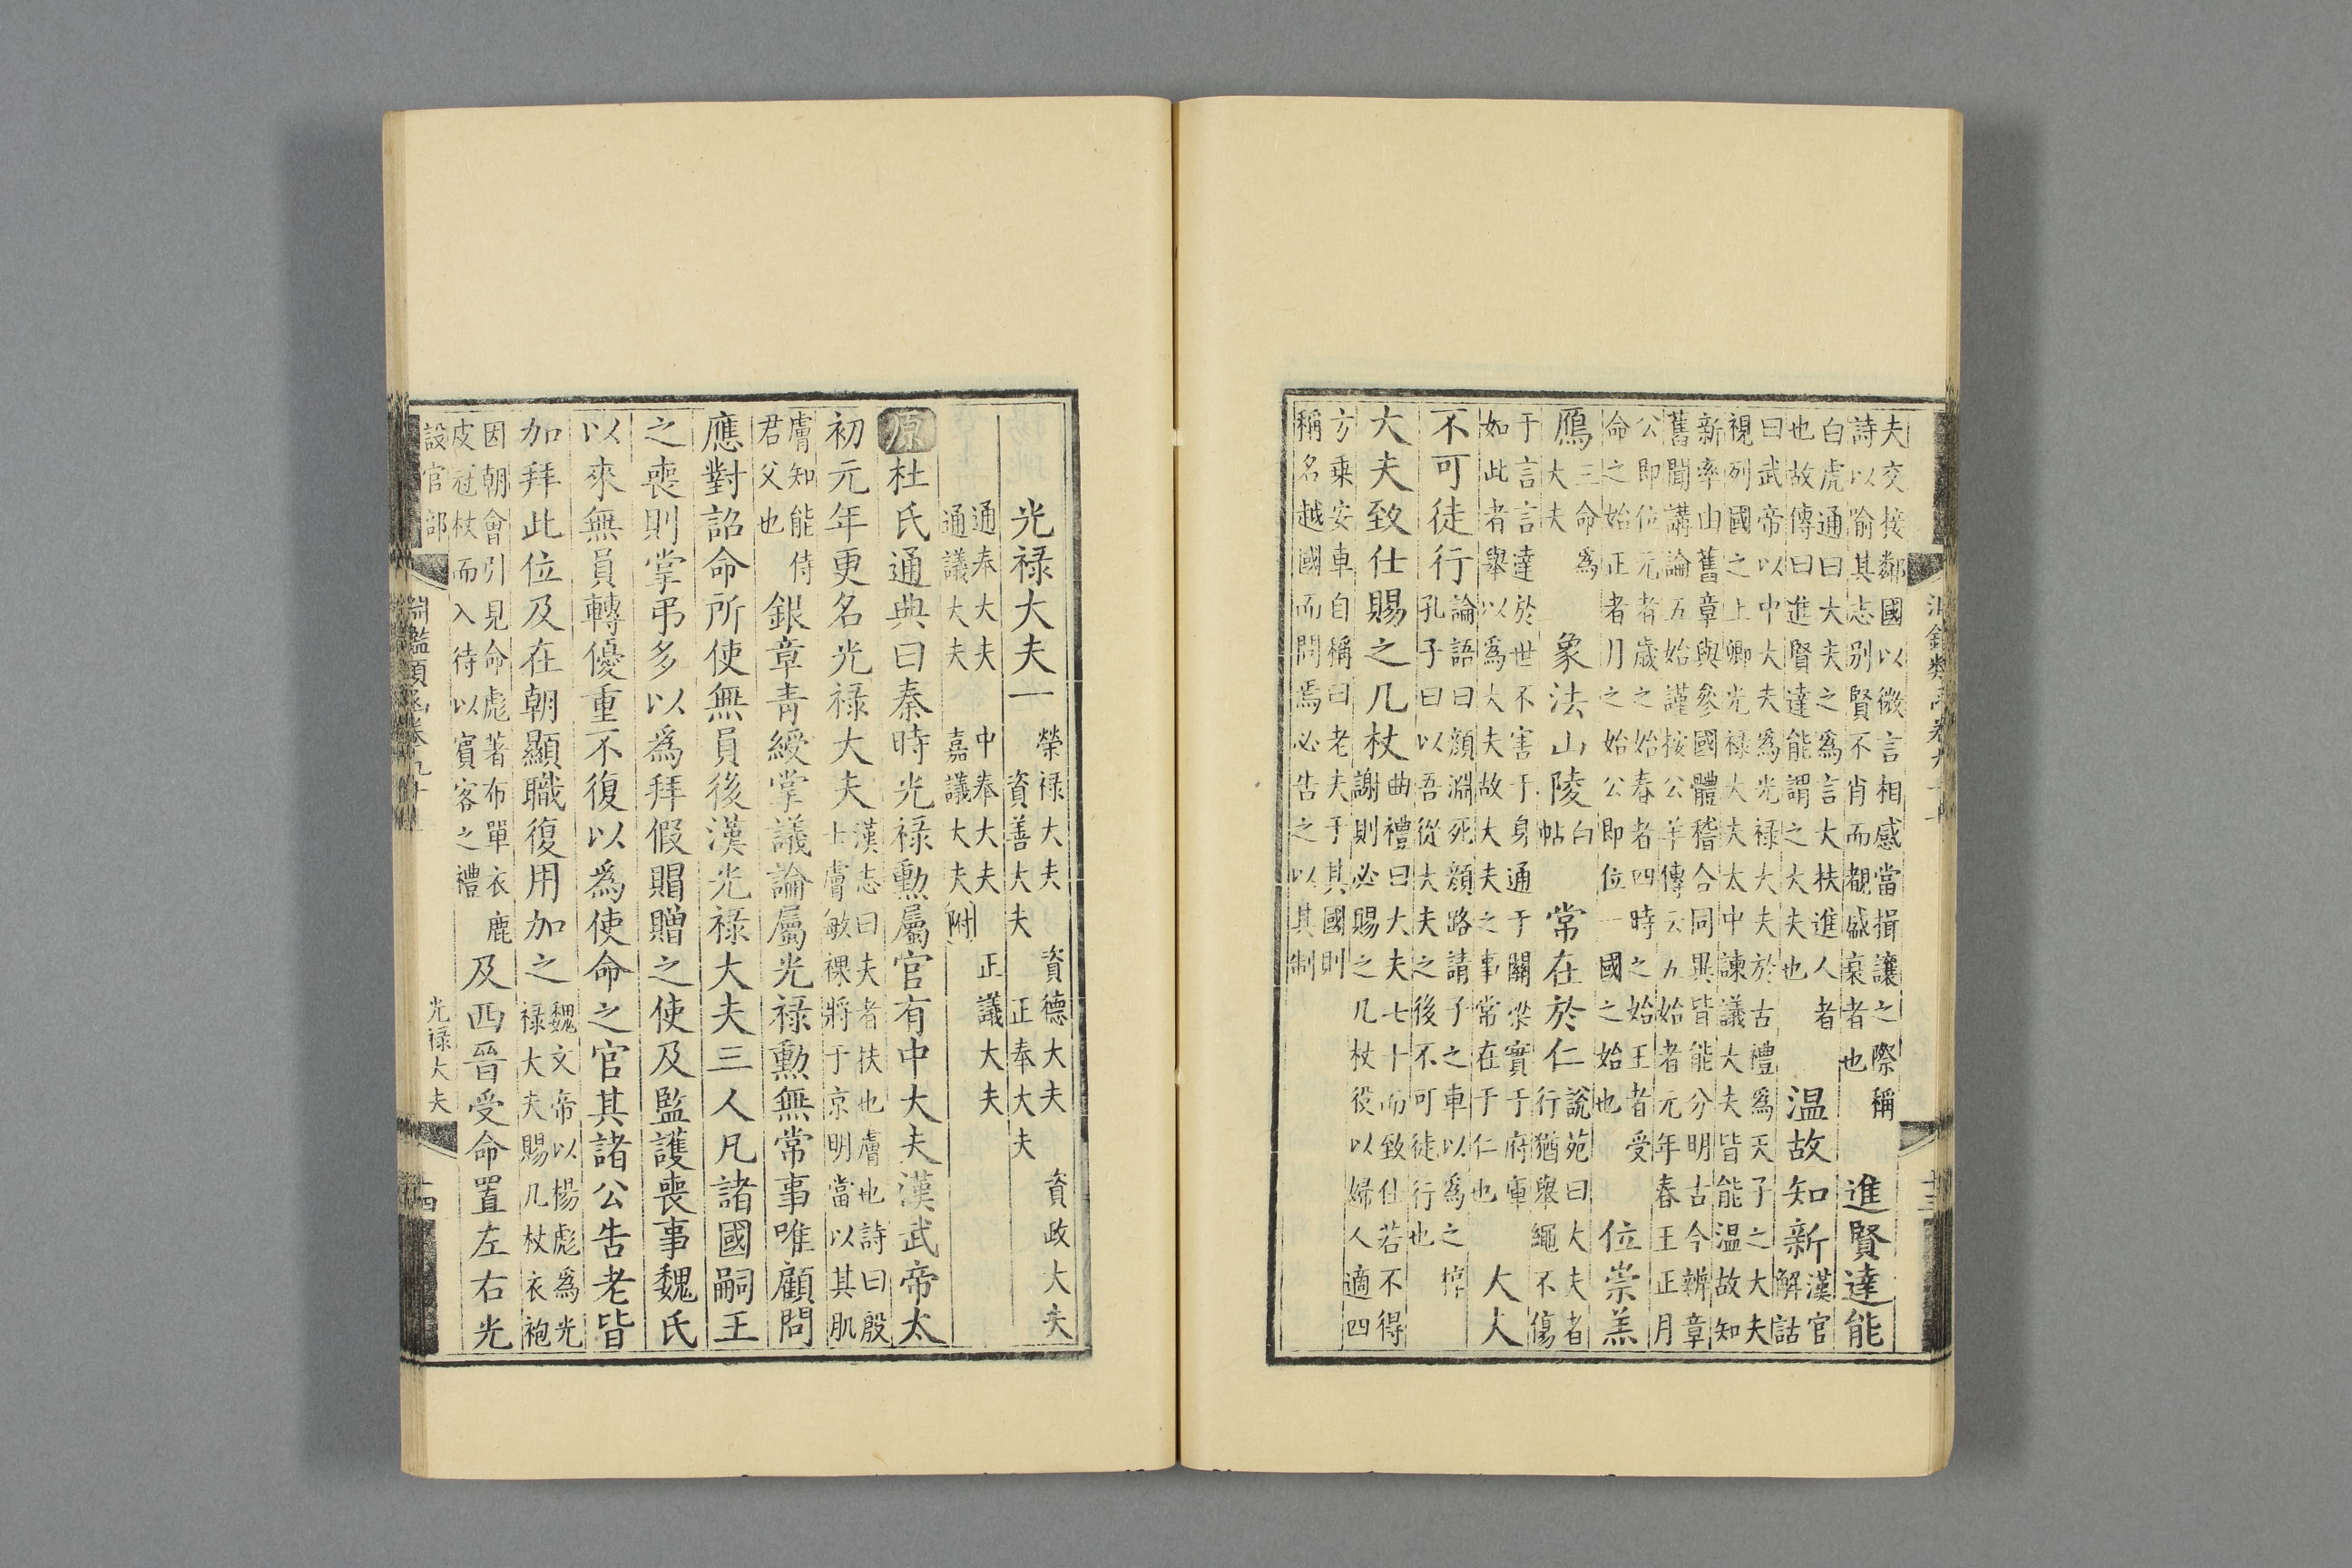 夫交接鄰國以微言相感當揖讓之際稱
詩以喻其志别賢不肖而覩盛衰者也
進賢達能
白虎通曰大夫之爲言大扶進人者
也故傳曰進賢達能謂之大夫也
温故知新
漢官
解詁
曰武帝以中大夫爲光禄大夫於古禮爲天子之大夫
視列國之上卿光禄大夫太中諫議大夫皆能温故知
新率山舊章與參國體稽合同異皆能分明古今辨章
舊聞講論五始謹按公羊傳云五始者元年春王正月
公即位元者歲之始春者四時之始王者受
命之始正者月之始公即位一國之始也
位崇羔
鴈
三命爲
大夫
象法山陵
白
帖
常在於仁
說苑曰大夫者
行猶舉繩不傷
于言言達於世不害于身通于關梁實于府庫
如此者舉以爲大夫故大夫之事常在于仁也
大大
不可徒行
論語曰顔淵死顔路請子之車以爲之椁
孔子曰以吾從大夫之後不可徒行也
大夫致仕賜之几杖
曲禮曰大夫七十而致仕若不得
謝則必賜之几杖役以婦人適四
方乗安車自稱曰老夫于其國則
稱名越國而問焉必告之以其制
光禄大夫一
榮禄大夫 資德大夫 資政大夫
資善大夫 正奉大夫
通奉大夫 中奉大夫 正議大夫
通議大夫 嘉議大夫附
原杜氏通典曰秦時光禄勲屬官有中大夫漢武帝太
初元年更名光禄大夫
漢志曰夫者扶也膚也詩曰殷
士膚敏祼將于京明當以其肌
膚知能侍
君父也
銀章青綬掌議論屬光禄勲無常事唯顧問
應對詔命所使無員後漢光禄大夫三人凡諸國嗣王
之喪則掌弔多以爲拜假賵贈之使及監護喪事魏氏
以來無員轉優重不復以爲使命之官其諸公告老皆
加拜此位及在朝顯職復用加之
魏文帝以楊彪爲光
禄大夫賜几杖衣袍
因朝會引見命彪著布單衣鹿
皮冠杖而入待以賓客之禮
及西晉受命置左右光
設官部
淵鑑類函卷九十
光禄大夫
十四